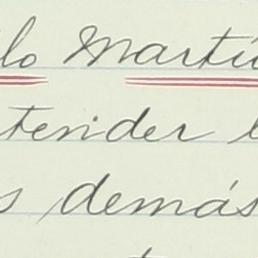 lo Martí
tender l
s demás